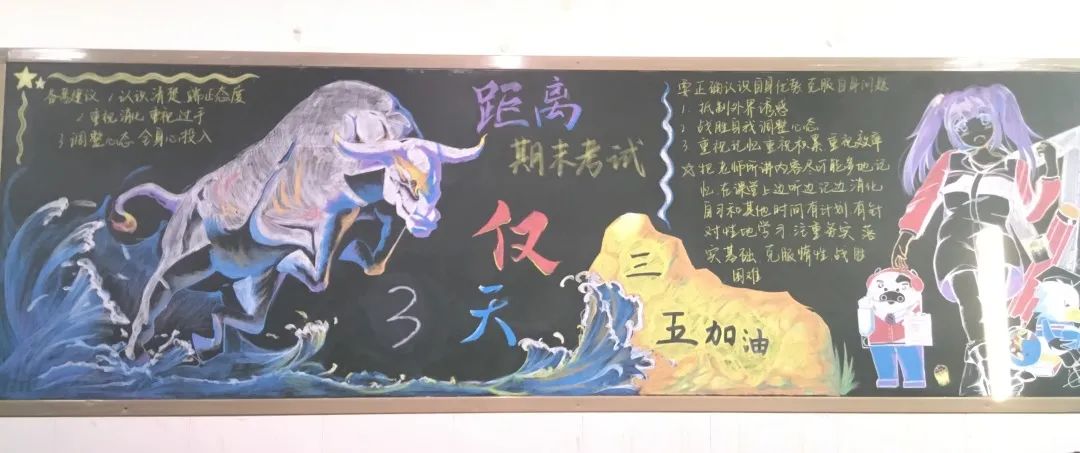 备考建议 1 认识清楚 端正态度
2 重视消化 重视过手
3 调整心态 全身心投入
距离
期末考试
仅
3 天
三
五加油
要正确认识自身优表 克服自身问题
1. 抵制外界诱惑
2. 战胜自我 调整心态
3. 重视记忆 重视积累 重视效率
☆把老师所讲内容尽可能多地记
忆 在课堂上边听边记边消化
自习和其他时间有计划 有针
对性地学习 注重务实 落
实基础 克服惰性 战胜
困难